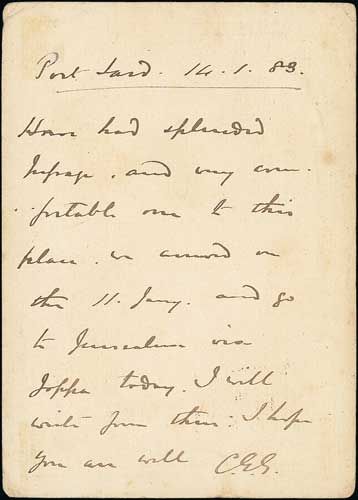 Port Said. 14.1.83.
Have had splendid
passage. and very com-
fortable one to this
place. we arrived on
the 11. Jany. and go
to Jerusalem via
Joppa today. I will
write from there. I hope
you are well C.G.G.